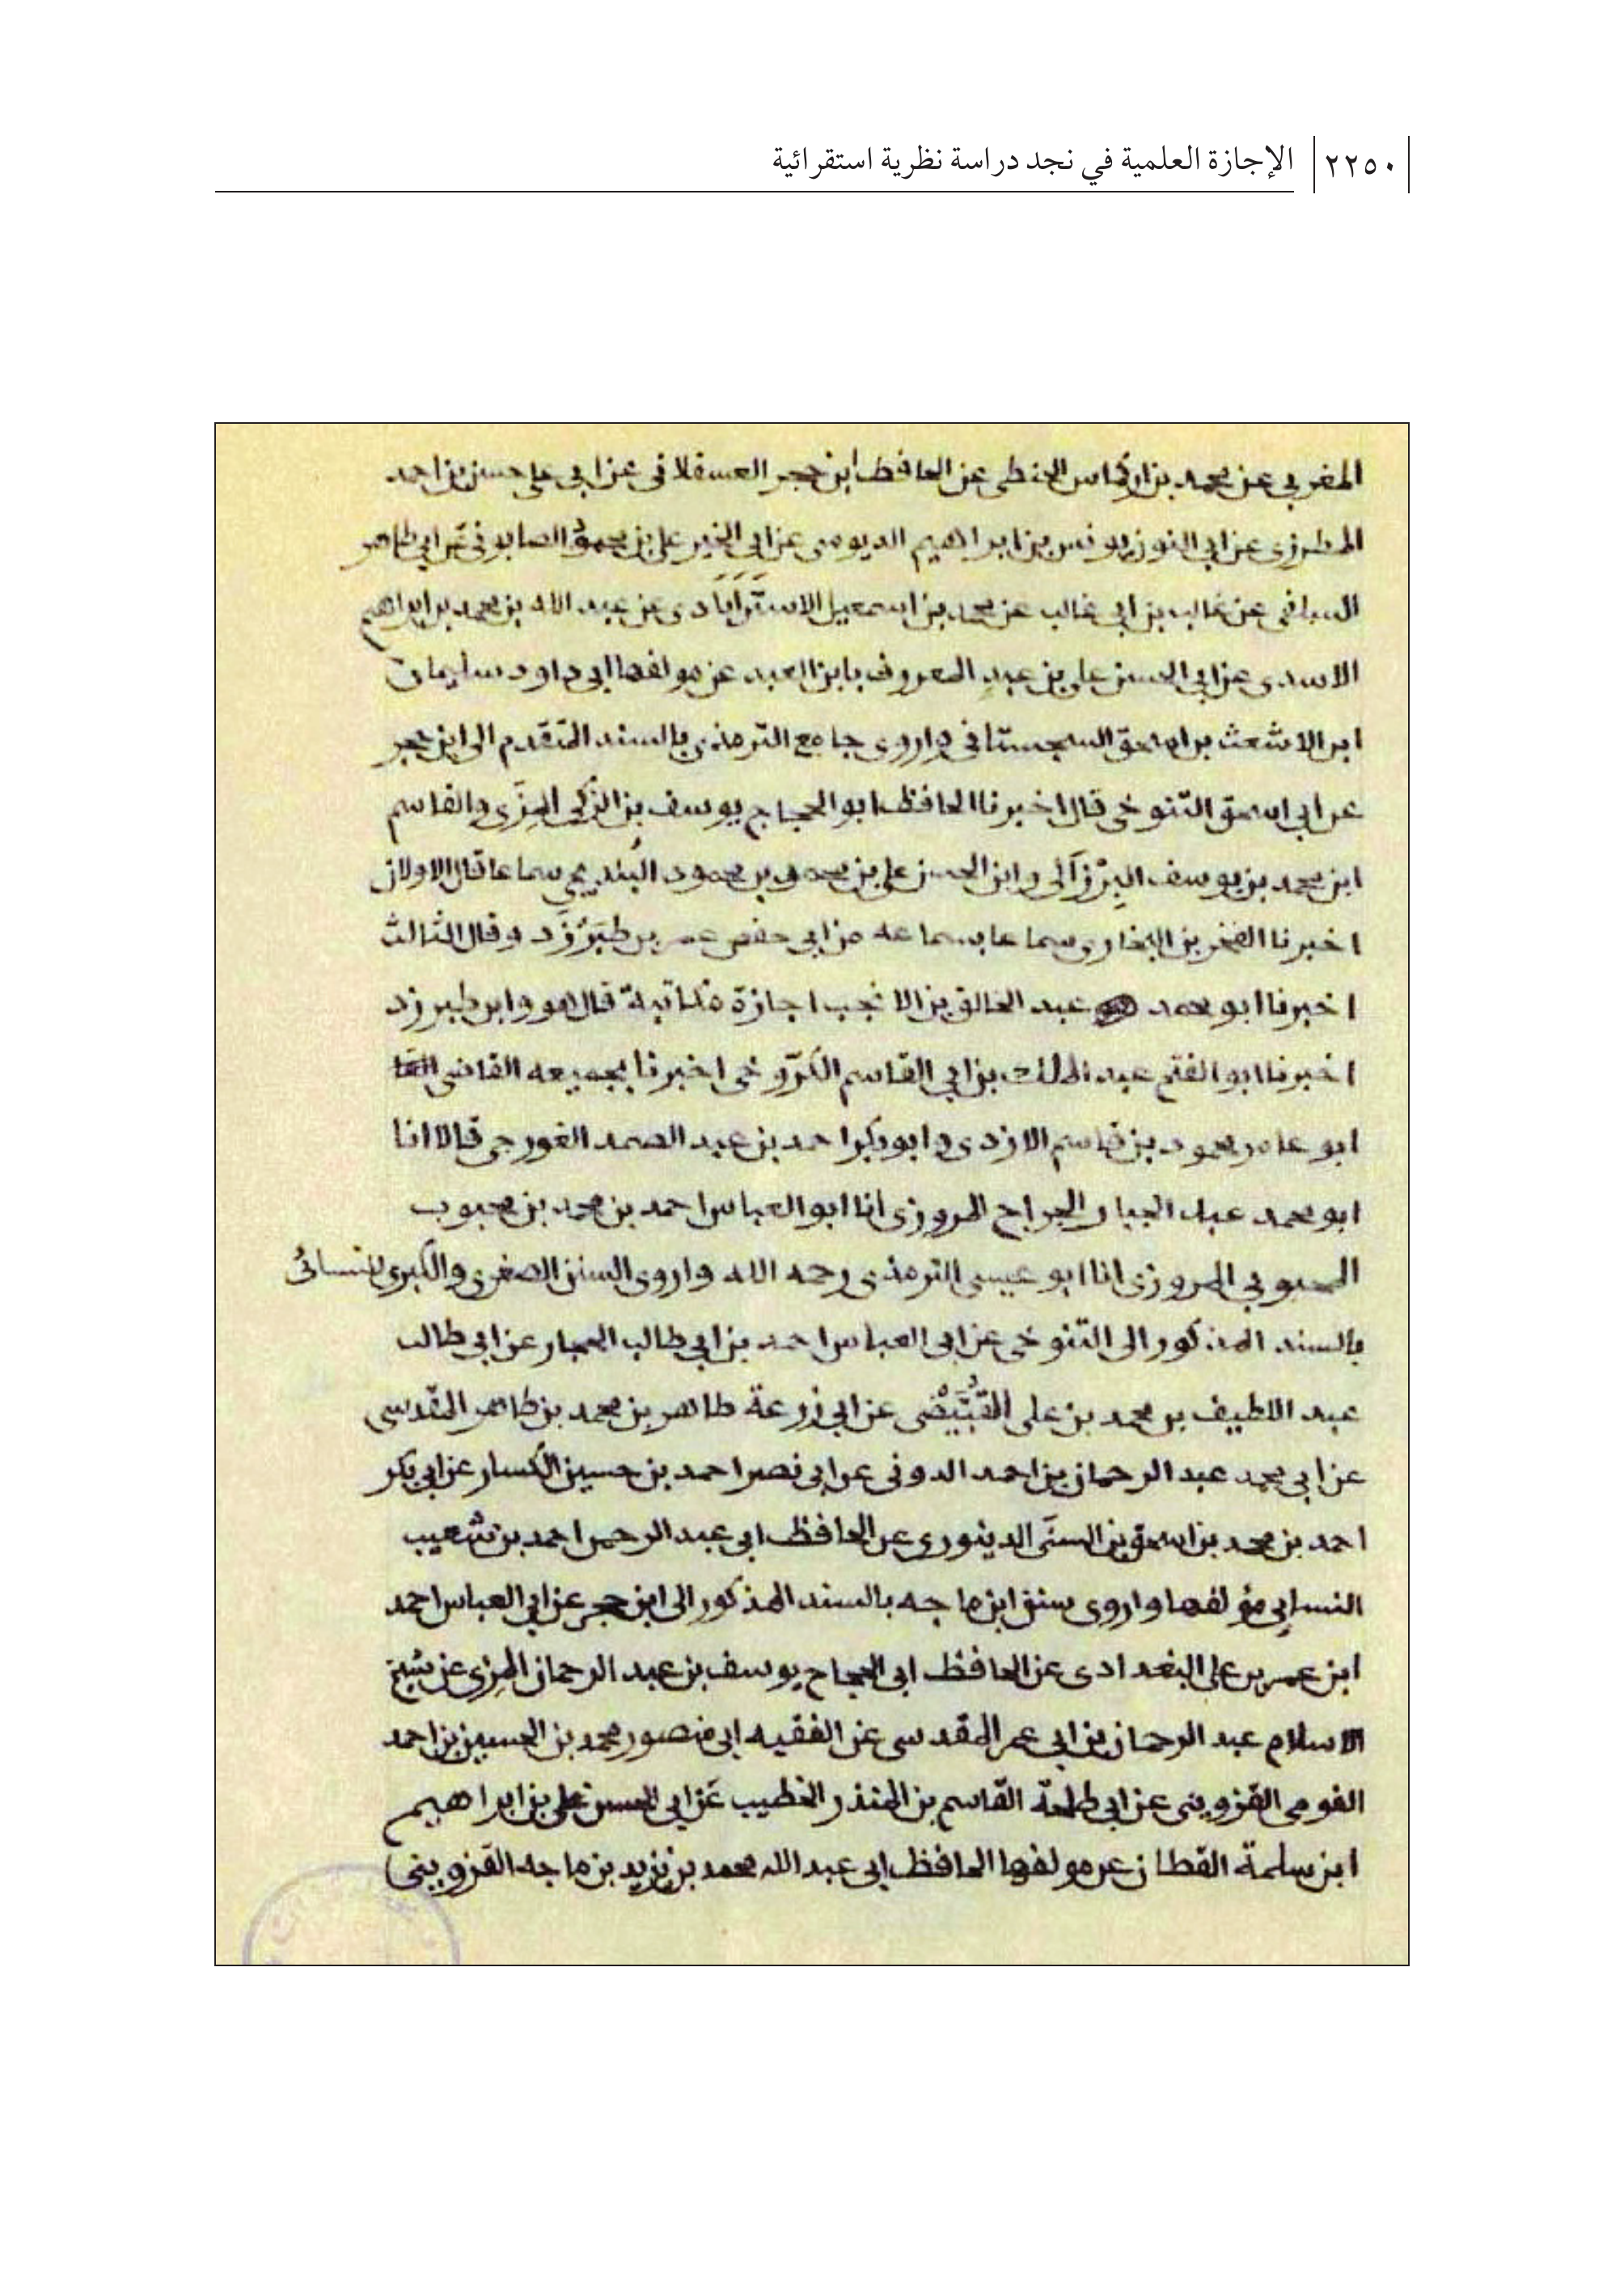 ٢٢٥٠ الإجازة العلمية في نجد دراسة نظرية استقرائية
المغربي عن محمد بن اركماس الحنفي عن الحافظ ابن حجر العسقلاني عن ابي علي حسن بن احمد
المطرزي عن ابي النون يونس بن ابراهيم الدبوسي عن ابي الخير علي بن محمود الصابوني عن ابي طاهر
السلفي عن غالب بن ابي غالب عن محمد بن اسمعيل الاستراباذي عن عبد الله بن محمد بن ابراهيم
الاسدي عن ابي الحسن علي بن عبد المعروف بابن العبد عن مولفها ابي داود سليمان
ابن الاشعث بن اسحق السجستاني واروي جامع الترمذي بالسند المتقدم الى ابن حجر
عن ابي اسحق التنوخي قال اخبرنا الحافظ ابو الحجاج يوسف بن الزكي المزي والقاسم
ابن محمد بن يوسف البرزالي وابن الحسن علي بن محمد بن محمود البندنيجي سماعا قال الاولان
اخبرنا الفخر بن البخاري سماعا بسماعه من ابي حفص عمر بن طبرزد وقال الثالث
اخبرنا ابو محمد عبد الخالق بن الانجب اجازة مكاتبة قال هو وابن طبرزد
اخبرنا ابو الفتح عبد الملك بن ابي القاسم الكروخي اخبرنا بجميعه القاضي
ابو عامر محمود بن قاسم الازدي وابو بكر احمد بن عبد الصمد الغورجي قالا انا
ابو محمد عبد الجبار الجراح المروزي انا ابو العباس احمد بن محمد بن محبوب
المحبوبي المروزي انا ابو عيسى الترمذي رحمه الله واروي السنن الصغرى والكبرى للنسائي
بالسند المذكور الى التنوخي عن ابي العباس احمد بن ابي طالب الحجار عن ابي طالب
عبد اللطيف بن محمد بن علي القُبَّيْضى عن ابي زرعة طاهر بن محمد بن طاهر المقدسي
عن ابي محمد عبد الرحمان بن احمد الدوني عن ابي نصر احمد بن حسين الكسار عن ابي بكر
احمد بن محمد بن اسحق بن السنَي الدينوري عن الحافظ ابي عبد الرحمن احمد بن شعيب
النسابي مؤلفها واروي سنن ابن ماجه بالسند المذكور الى ابن حجر عن ابي العباس احمد
ابن عمر بن علي البغدادي عن الحافظ ابي الحجاج يوسف بن عبد الرحمان المزي عن شيخ
الاسلام عبد الرحمان بن ابي عمر المقدسي عن الفقيه ابي منصور محمد بن الحسين بن احمد
القومي القزويني عن ابي طلحة القاسم بن المنذر الخطيب عن ابي الحسن علي بن ابراهيم
ابن سلمة القطان عن مولفها الحافظ ابي عبد الله محمد بن يزيد بن ماجه القزويني